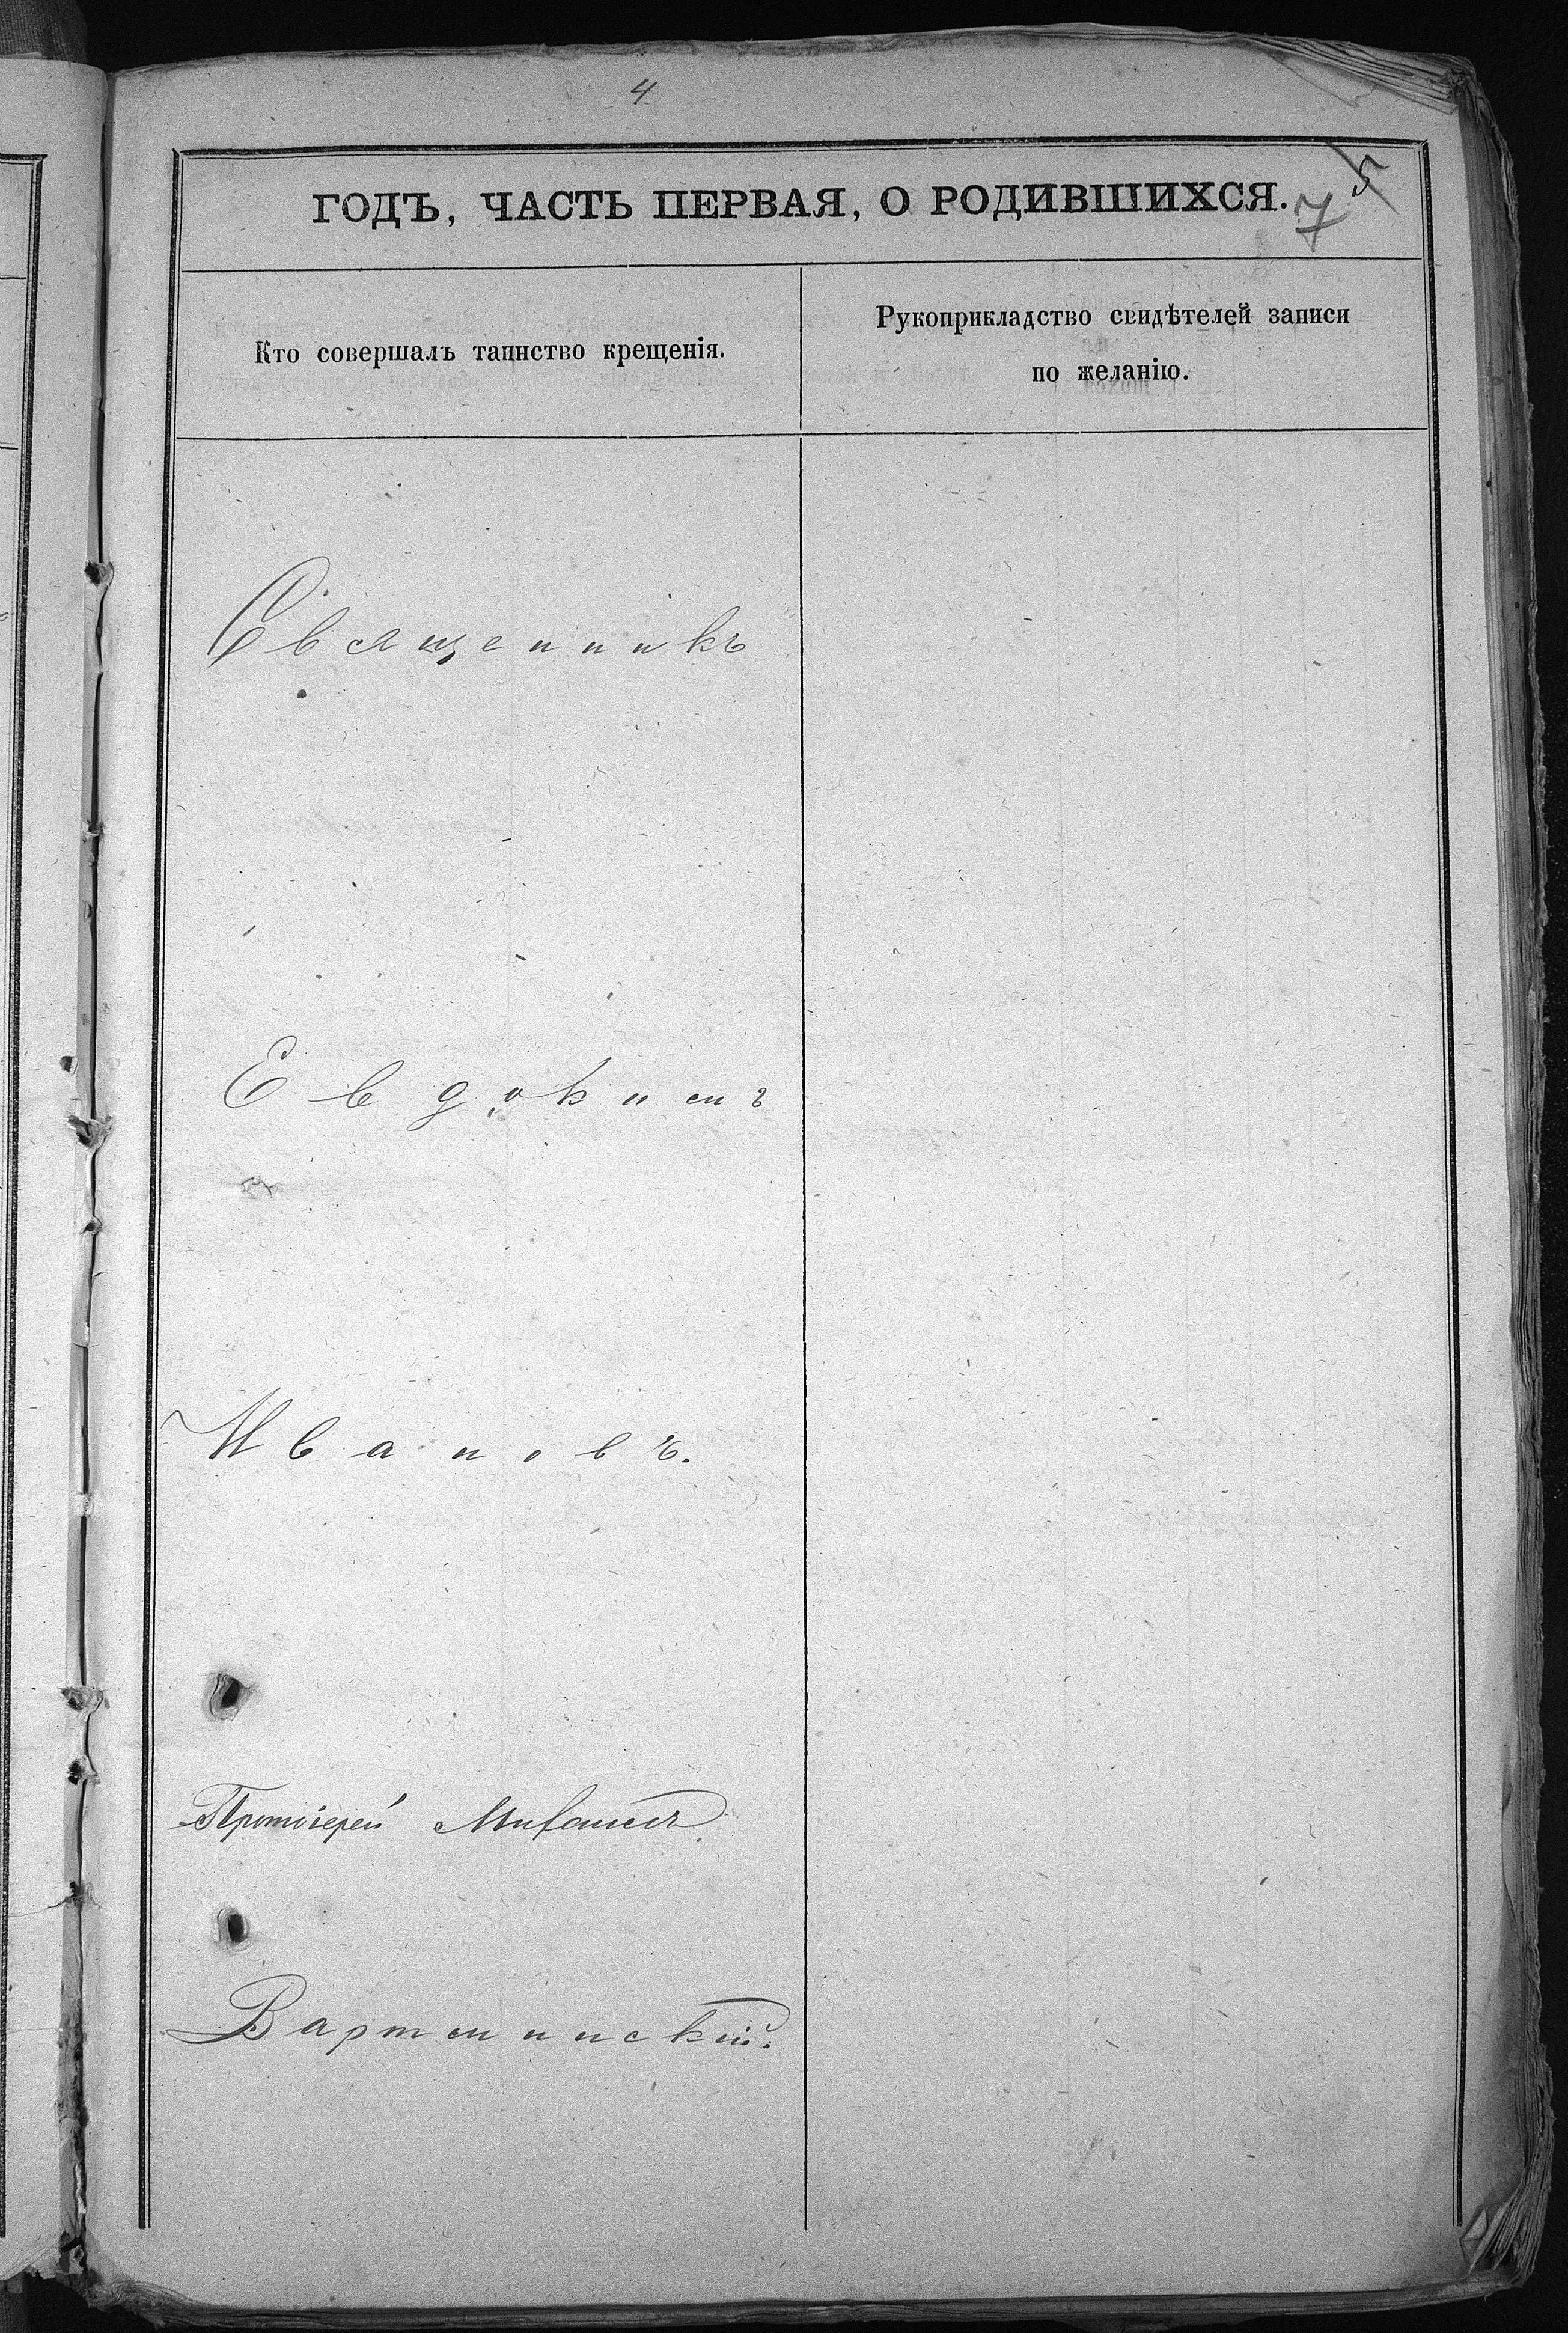 4
ГОДЪ, ЧАСТЬ ПЕРВАЯ, О РОДИВШИХСЯ.
5
7
Кто совершалъ таинство крещенія.
Рукоприкладство свидѣтелей записи
по желанію.
Священникъ
Евдокимъ
Ивановъ.
Протоіерей Михаилъ
Вартминскій.